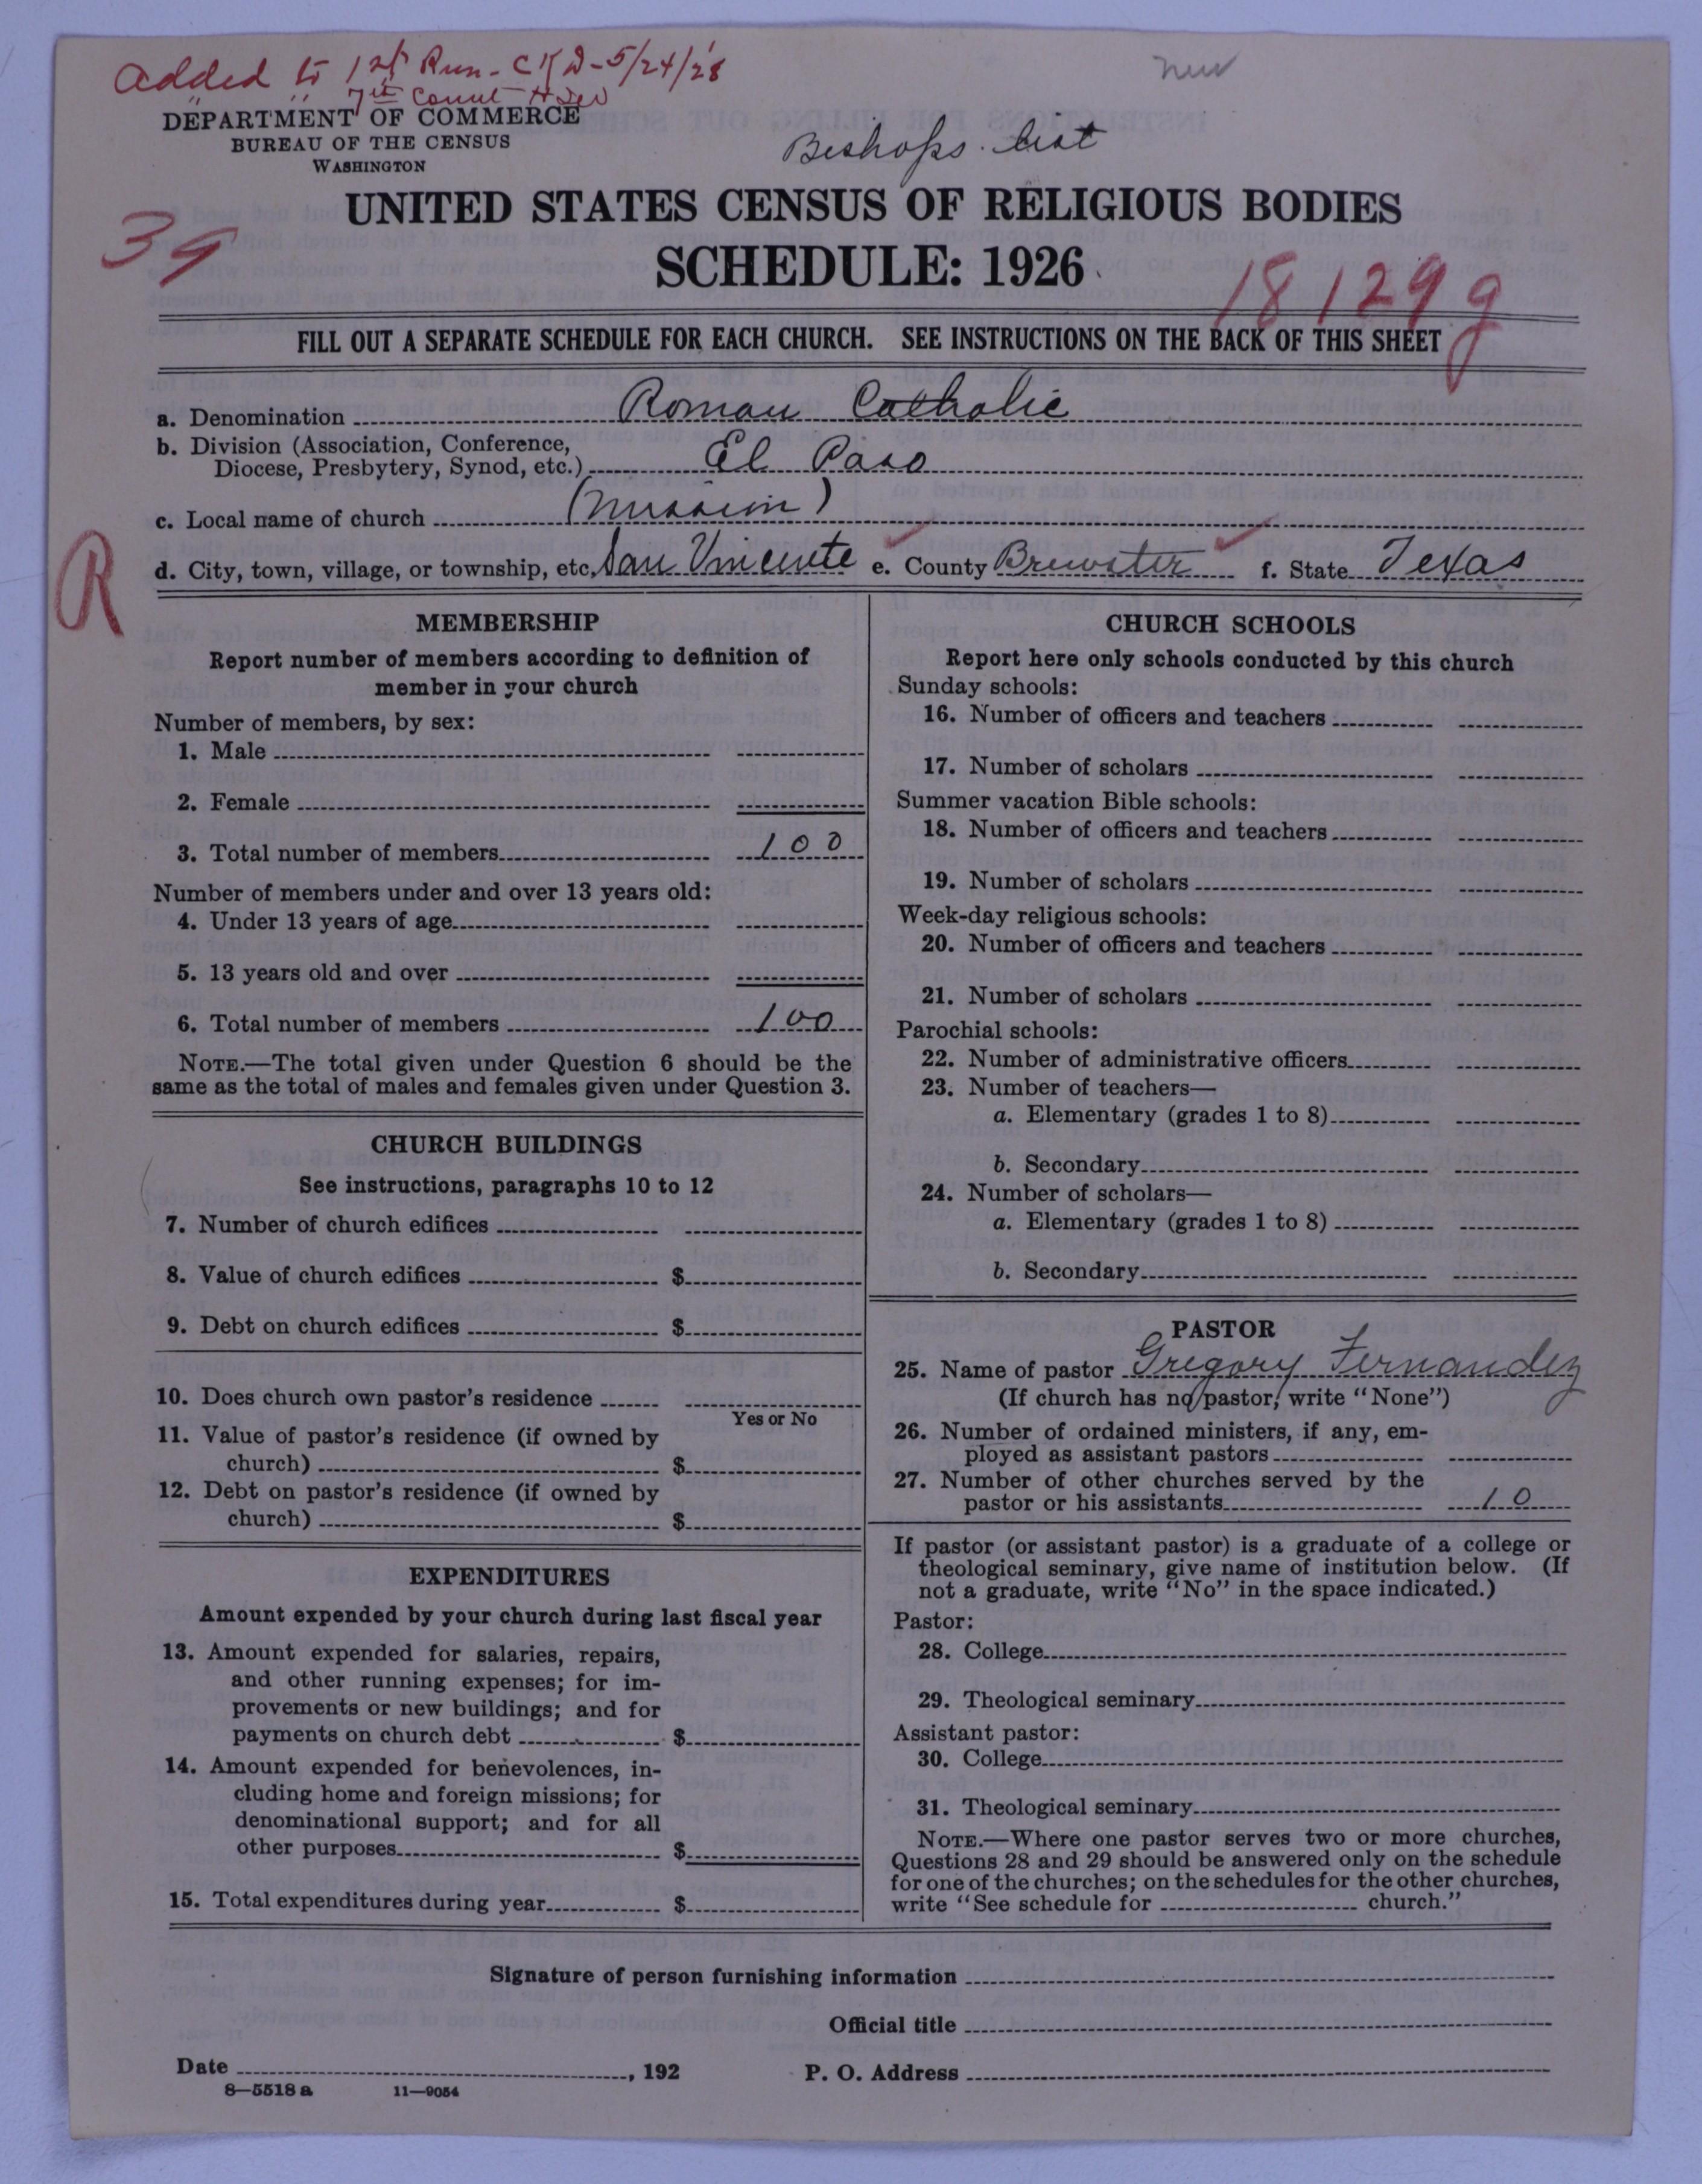 Added to 1st Run - CKD - 5/24/28
" " 7th Count
new
DEPARTMENT OF COMMERCE
BUREAU OF THE CENSUS
WASHINGTON
Bishops list
UNITED STATES CENSUS OF RELIGIOUS BODIES
SCHEDULE: 1926
39
18129g
FILL OUT A SEPARATE SCHEDULE FOR EACH CHURCH. SEE INSTRUCTIONS ON THE BACK OF THIS SHEET
a. Denomination Roman Catholic
b. Division (Association, Conference,
Diocese, Presbytery, Synod, etc.) El Paso
c. Local name of church (Mission)
d. City, town, village, or township, etc. San Vincente e. County Brewster f. State Texas
R
MEMBERSHIP
Report number of members according to definition of
member in your church
Number of members, by sex:
1. Male
2. Female
3. Total number of members 100
Number of members under and over 13 years old:
4. Under 13 years of age
5. 13 years old and over
6. Total number of members 100
NOTE.—The total given under Question 6 should be the
same as the total of males and females given under Question 3.
CHURCH BUILDINGS
See instructions, paragraphs 10 to 12
7. Number of church edifices
8. Value of church edifices $
9. Debt on church edifices $
10. Does church own pastor's residence
Yes or No
11. Value of pastor's residence (if owned by
church) $
12. Debt on pastor's residence (if owned by
church) $
EXPENDITURES
Amount expended by your church during last fiscal year
13. Amount expended for salaries, repairs,
and other running expenses; for im-
provements or new buildings; and for
payments on church debt $
14. Amount expended for benevolences, in-
cluding home and foreign missions; for
denominational support; and for all
other purposes $
15. Total expenditures during year $
CHURCH SCHOOLS
Report here only schools conducted by this church
Sunday schools:
16. Number of officers and teachers
17. Number of scholars
Summer vacation Bible schools:
18. Number of officers and teachers
19. Number of scholars
Week-day religious schools:
20. Number of officers and teachers
21. Number of scholars
Parochial schools:
22. Number of administrative officers
23. Number of teachers—
a. Elementary (grades 1 to 8)
b. Secondary
24. Number of scholars—
a. Elementary (grades 1 to 8)
b. Secondary
PASTOR
25. Name of pastor Gregory Fernandez
(If church has no pastor, write "None")
26. Number of ordained ministers, if any, em-
ployed as assistant pastors
27. Number of other churches served by the
pastor or his assistants 10
If pastor (or assistant pastor) is a graduate of a college or
theological seminary, give name of institution below. (If
not a graduate, write "No" in the space indicated.)
Pastor:
28. College
29. Theological seminary
Assistant pastor:
30. College
31. Theological seminary
NOTE.—Where one pastor serves two or more churches,
Questions 28 and 29 should be answered only on the schedule
for one of the churches; on the schedules for the other churches,
write "See schedule for church."
Signature of person furnishing information
Official title
Date , 192 P. O. Address
8—5518 a 11—9054